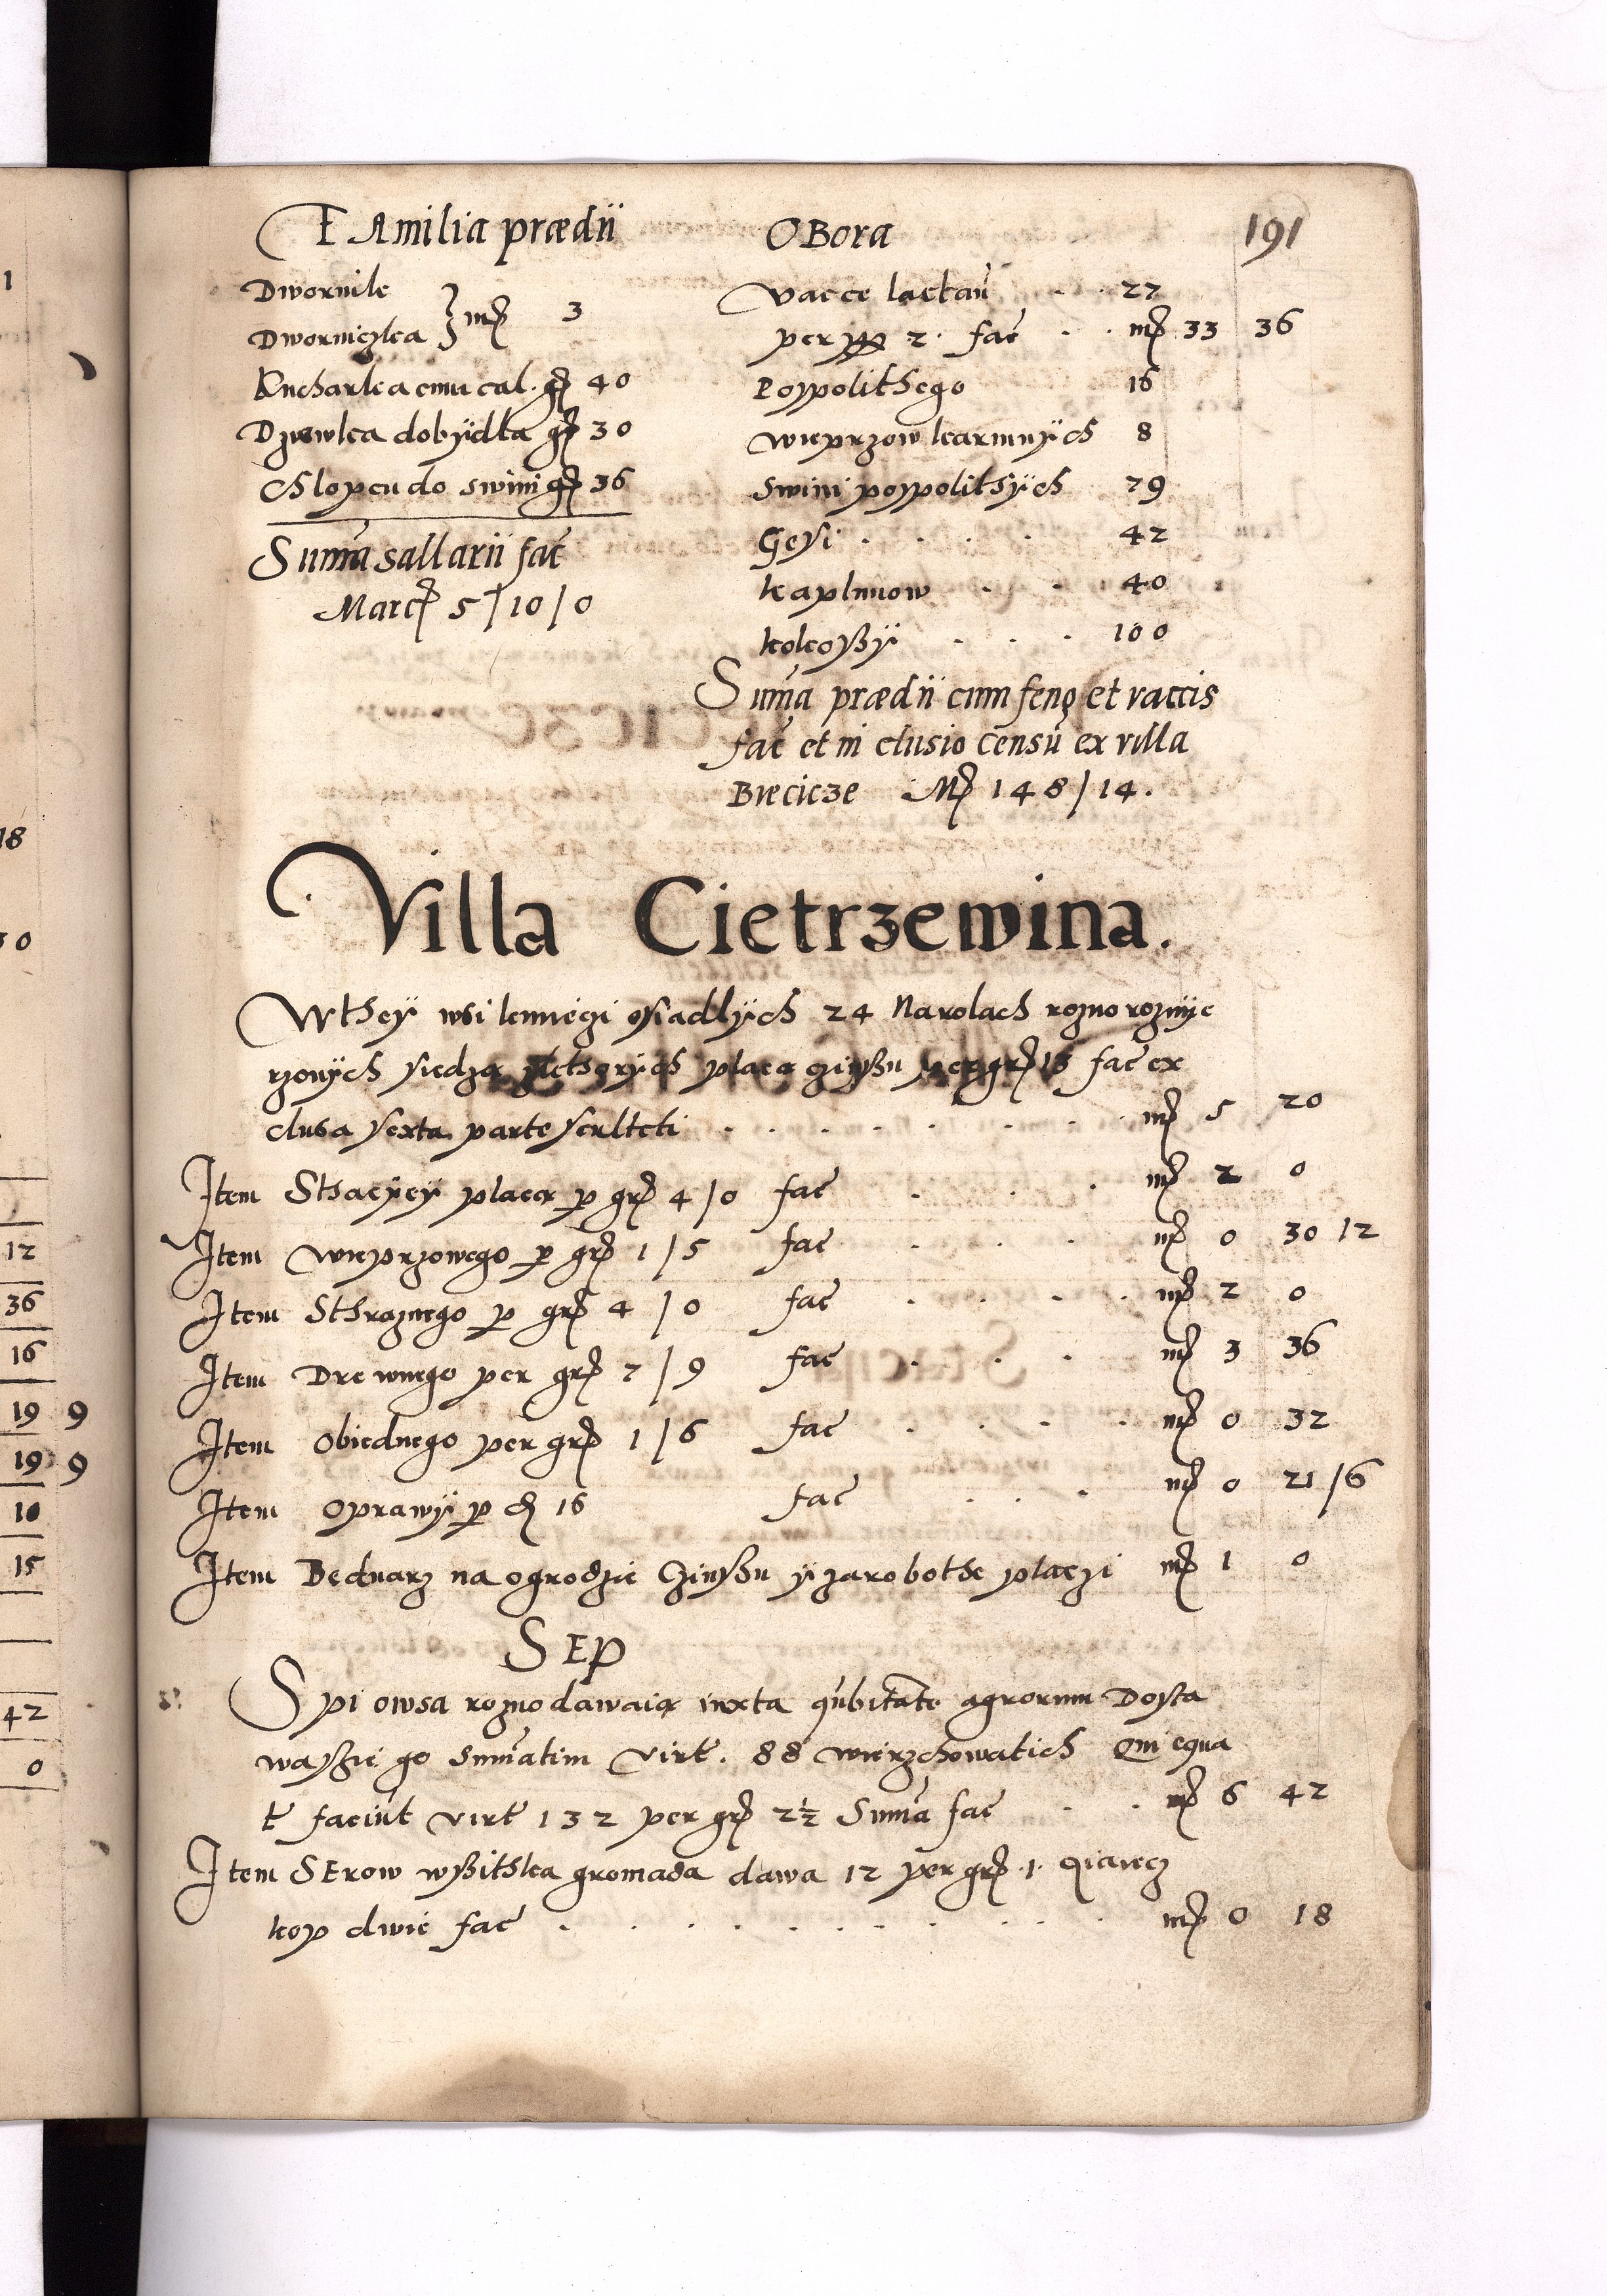 191
FAmilia prædii
Dwornik
Dworniczka } mr̃ 3
Kucharka cum cal. gr̃ 40
Dziewka dobÿdła gr̃ 30
Chlopcu do swini gr̃ 36
Sum̃a sallarii fac̃
Marc̃ 5/10/0
OBora
Vacce lactañ . . 22
per 2. fac̃ . . mr̃ 33 36
Pospolithego 16
wieprzow karmnÿch 8
Swini pospolithÿch 29
Gęsi . . . . 42
kapłunow . . 40
kokoszÿ . . . 100
Sum̃a prædii cum feno et vaccis
fac̃ et in clusio censũ ex villa
Brecicze Mr̃ 148/14.
Villa Cietrzewina.
Wtheÿ wsi kmieczi osiadlÿch 24 Narolach rozno rozmÿe
rzonÿch siedzą ktorÿch placą czinszu per gr̃ 18 fac̃ ex
clusa sexta parte sculteti . . . . . . . mr̃ 5 20
Item Sthacÿeÿ placą p gr̃ 4/0 fac̃ . . . mr̃ 2 0
Item wieprzowego p gr̃ 1/5 fac̃ . . . mr̃ 0 30 12
Item Sthroznego p gr̃ 4/0 fac̃ . . . . mr̃ 2 0
Item Drewnego per gr̃ 7/9 fac̃ . . . mr̃ 3 36
Item Obiednego per gr̃ 1/6 fac̃ . . . . mr̃ 0 32
Item Oprawÿ p d 16 fac̃ . . . mr̃ 0 21/6
Item Bednarz na ogrodzie Czinszu ÿ zarobothe placzi mr̃ 1 0
SEP
Spi owsa rozno dawaią iuxta qũbitatẽ agrorum Dosta
waszie go Sum̃atim virt̃. 88 wierzchowatich Qui equa
t̃ faciũt virt̃ 132 per gr̃ 2½ Sum̃a fac̃ . . mr̃ 6 42
Item SErow wszithka gromada dawa 12 per gr̃ 1. Qiaiecz
kop dwie fac̃ . . . . . . . . . . mr̃ 0 18
1
18
30
12
36
16
19 9
19 9
10
15
42
0